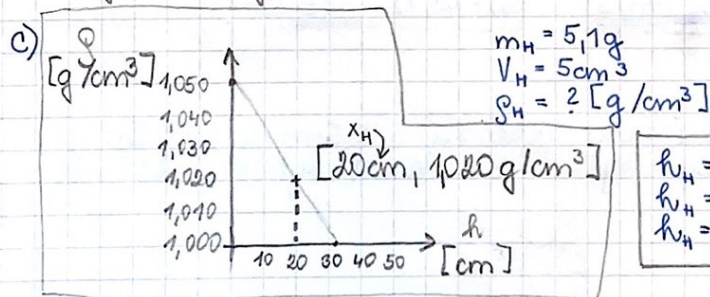 c)
ρ
[g/cm³]
1,050
1,040
1,030
1,020
1,010
1,000
10 20 30 40 50
h
[cm]
x_H
[20cm, 1,020 g/cm³]
m_H = 5,1g
V_H = 5cm³
ρ_H = ? [g/cm³]
h_H =
h_H =
h_H =